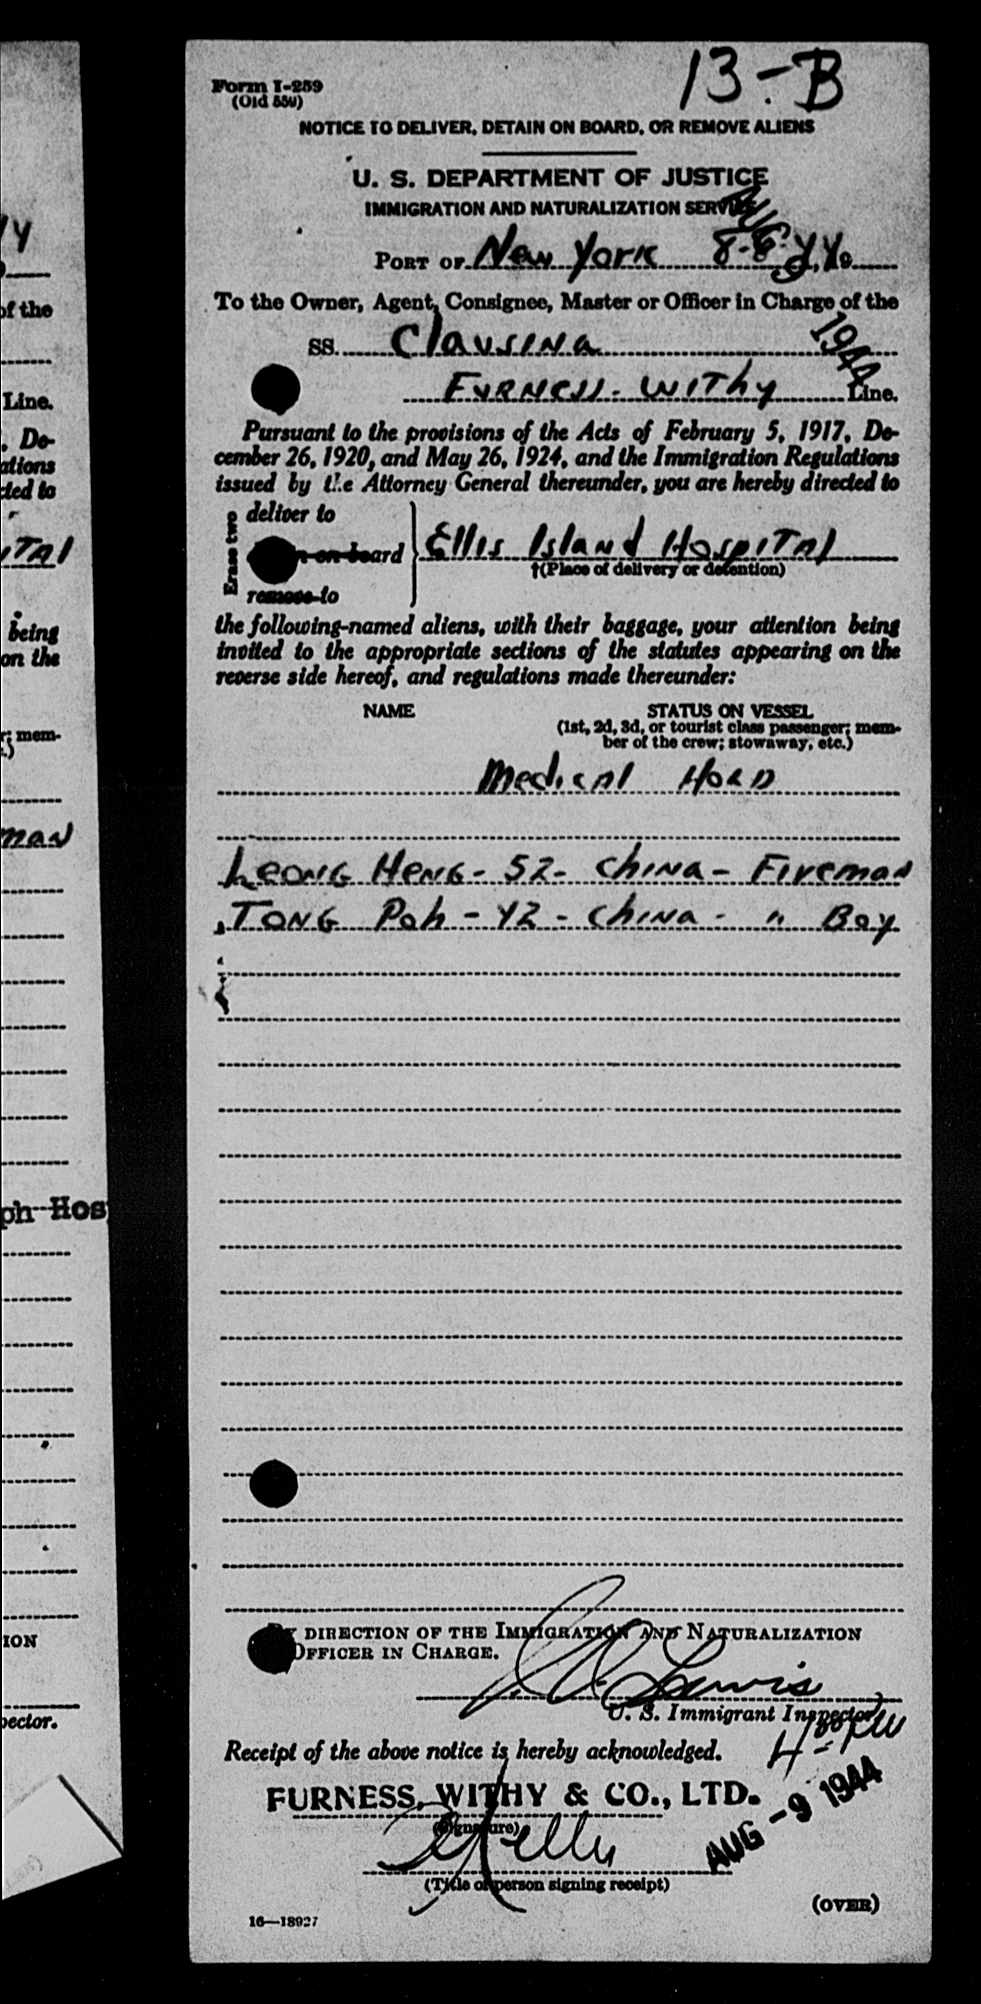 13-B
Form I-259
(Old 550)
NOTICE TO DELIVER, DETAIN ON BOARD, OR REMOVE ALIENS
U. S. DEPARTMENT OF JUSTICE
IMMIGRATION AND NATURALIZATION SERVICE
PORT OF New York 8-8-44
AUG 9 1944
To the Owner, Agent, Consignee, Master or Officer in Charge of the
SS. Clausina
Furness-Withy Line.
Pursuant to the provisions of the Acts of February 5, 1917, De-
cember 26, 1920, and May 26, 1924, and the Immigration Regulations
issued by the Attorney General thereunder, you are hereby directed to
Erase two
deliver to
on board
remove to
Ellis Island Hospital
†(Place of delivery or detention)
the following-named aliens, with their baggage, your attention being
invited to the appropriate sections of the statutes appearing on the
reverse side hereof, and regulations made thereunder:
NAME STATUS ON VESSEL
(1st, 2d, 3d, or tourist class passenger; mem-
ber of the crew; stowaway, etc.)
Medical Hold
Leong Heng - 52 - China - Fireman
Tong Pah - 42 - China - " Boy
BY DIRECTION OF THE IMMIGRATION AND NATURALIZATION
OFFICER IN CHARGE.
Lewis
U. S. Immigrant Inspector
Receipt of the above notice is hereby acknowledged.
FURNESS, WITHY & CO., LTD.
(Signature)
Kelly
AUG -9 1944
(Title of person signing receipt)
(OVER)
16—18927
of the
Line.
, De-
ations
cted to
ITAl
being
on the
r; mem-
man
ph Hos
ION
pector.